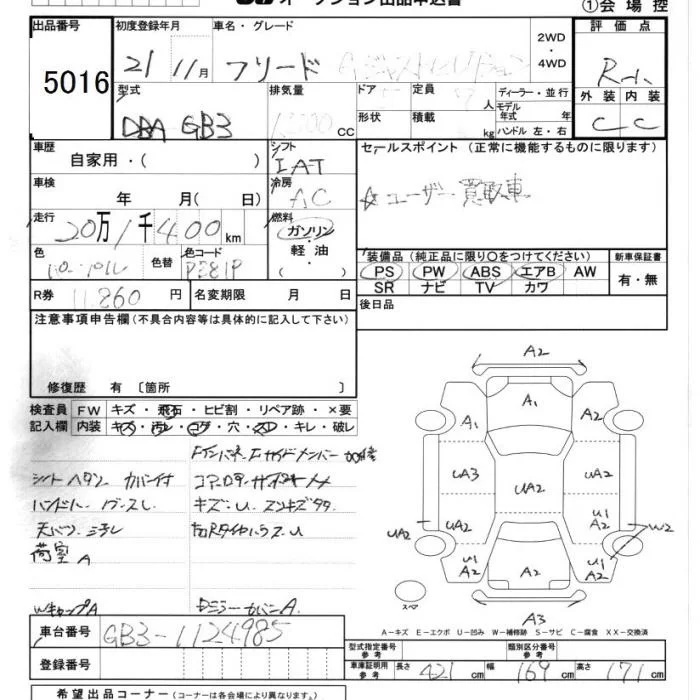 オークション出品申込書
①会場控
出品番号 初度登録年月 車名・グレード 評価点
5016 21 11月 フリード 2WD・4WD R-1
型式 排気量 ドア 定員 人 ディーラー・並行 外装 内装
DBA GB3 CC 形状 積載 kg モデル年式 年 ハンドル 左・右 C C
車歴 シフト セールスポイント (正常に機能するものに限ります)
自家用・( ) IAT
☆ユーザー買取車
車検 冷房
年 月( 日) AC
走行 燃料
20万1千400km ガソリン・軽油・( )
色 色替 色コード 装備品 (純正品に限り○をつけてください) 新車保証書
PS PW ABS エアB AW 有・無
SR ナビ TV カワ
R券 11,860円 名変期限 月 日
後日品
注意事項申告欄(不具合内容等は具体的に記入して下さい)
修復歴 有 〔箇所 〕
検査員 FW キズ・飛石・ヒビ割・リペア跡・×要
記入欄 内装 キズ・汚レ・コゲ・穴・スレ・キレ・破レ
シート ヘタリ カバー付
キズ・U
荷室 A
WキャップA
A2
A1 A2
UA3 UA2 UA2
UA2 UA2 U1 A2 W2
U1 A2 A2 U1 A2
スペア
A3
A-キズ E-エクボ U-凹み W-補修跡 S-サビ C-腐食 XX-交換済
車台番号 GB3-1124985
登録番号
型式指定番号 参考 類別区分番号 参考
車庫証明用 参考 長さ 421cm 幅 169cm 高さ 171cm
希望出品コーナー (コーナーは各会場により異なります。)